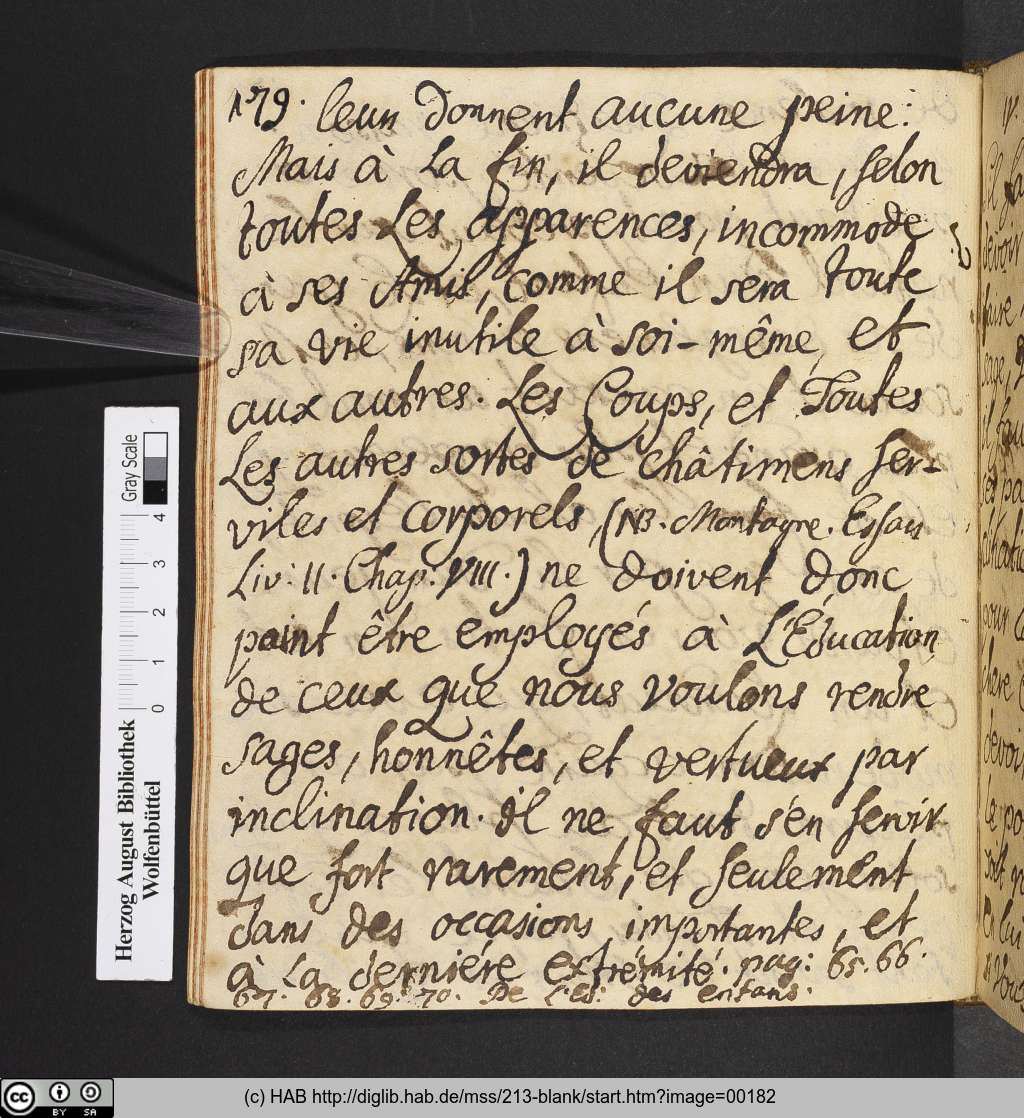 179. leur donnent aucune peine:
Mais à La fin, il deviendra, selon
toutes Les apparences, incommode
à ses Amis, comme il sera toute
sa vie inutile à soi-même, et
aux autres. Les Coups, et Toutes
Les autres sortes de châtimens ser-
viles et corporels, (NB. Montagne. Essais
Liv: II. Chap: VIII.) ne doivent donc
point être employés à L'Education
de ceux que nous voulons rendre
sages, honnêtes, et vertueux par
inclination. il ne faut s'en servir
que fort rarement, et seulement
dans des occasions importantes, et
à La derniére extrémité. pag: 65. 66.
67. 68. 69. 70. De l'Ed: des enfans.
Gray Scale
4
3
2
1
0
Herzog August Bibliothek
Wolfenbüttel
(c) HAB http://diglib.hab.de/mss/213-blank/start.htm?image=00182
cc BY SA